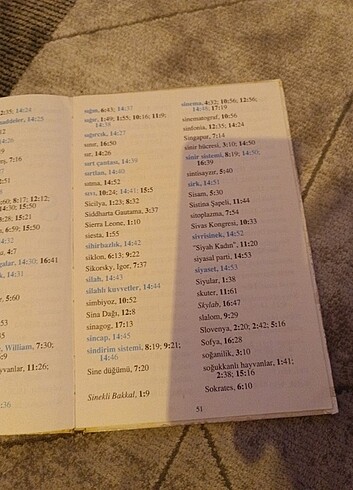 2:35; 14:24
maddeler, 14:25
7:16
60; 8:17; 12:12;
14:30; 15:50
6:28; 15:21
6:59; 15:50
14:32
4:7
14:30; 16:41
14:31
5:60
William, 7:30;
hayvanlar, 11:26;
14:36
sığın, 6:43; 14:37
sığır, 1:49; 1:55; 10:16; 11:9;
14:38
sığırcık, 14:27
sınır, 16:50
sır, 14:26
sırt çantası, 14:39
sırtlan, 14:40
sıtma, 14:52
sıvı, 10:24; 14:41; 15:5
Sicilya, 1:23; 8:32
Siddharta Gautama, 3:37
Sierra Leone, 1:10
siesta, 1:55
sihirbazlık, 14:42
siklon, 6:13; 9:22
Sikorsky, Igor, 7:37
silah, 14:43
silahlı kuvvetler, 14:44
simbiyoz, 10:52
Sina Dağı, 12:8
sinagog, 17:13
sincap, 14:45
sindirim sistemi, 8:19; 9:21;
14:46
Sine düğümü, 7:20
Sinekli Bakkal, 1:9
sinema, 4:32; 10:56; 12:56;
14:48; 17:19
sinematograf, 10:56
sinfonia, 12:35; 14:24
Singapur, 7:14
sinir hücresi, 3:10; 14:50
sinir sistemi, 8:19; 14:50;
16:39
sintisayzır, 5:40
sirk, 14:51
Sisam, 5:30
Sistina Şapeli, 11:44
sitoplazma, 7:54
Sivas Kongresi, 10:33
sivrisinek, 14:52
"Siyah Kadın", 11:20
siyasal parti, 14:53
siyaset, 14:53
Siyular, 1:38
skuter, 11:61
Skylab, 16:47
slalom, 9:29
Slovenya, 2:20; 2:42; 5:16
Sofya, 16:28
soğanilik, 3:10
soğukkanlı hayvanlar, 1:41;
2:38; 15:16
Sokrates, 6:10
51